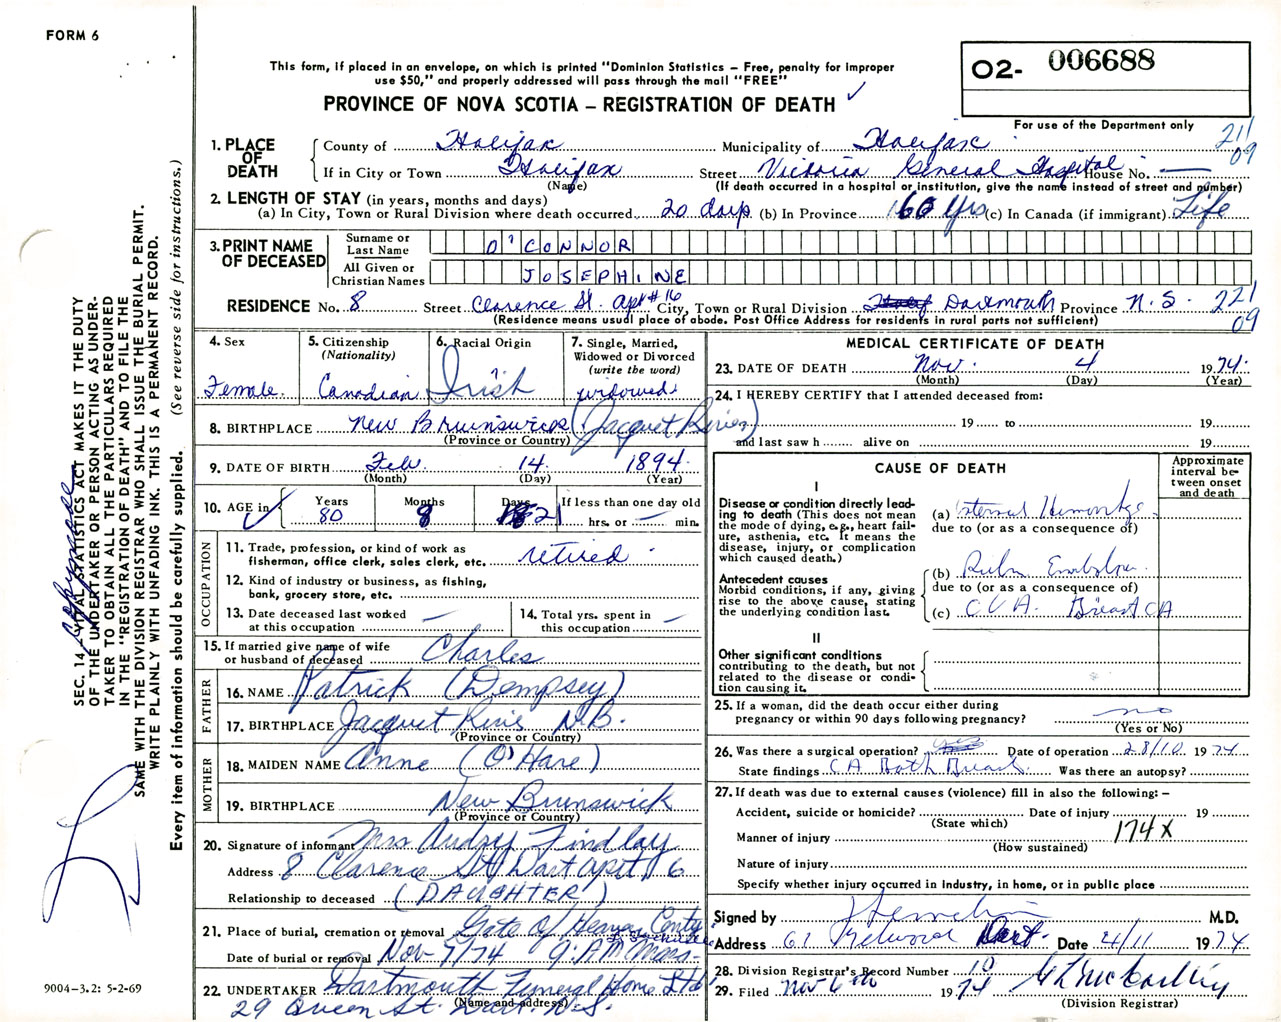 FORM 6
This form, if placed in an envelope, on which is printed "Dominion Statistics – Free, penalty for improper
use $50," and properly addressed will pass through the mail "FREE"
PROVINCE OF NOVA SCOTIA – REGISTRATION OF DEATH ✓
02- 006688
For use of the Department only
211
09
1. PLACE OF DEATH
County of Halifax Municipality of Halifax
If in City or Town Halifax Street Victoria General Hospital House No. —
(Name) (If death occurred in a hospital or institution, give the name instead of street and number)
2. LENGTH OF STAY (in years, months and days)
(a) In City, Town or Rural Division where death occurred 20 days (b) In Province 60 yrs (c) In Canada (if immigrant) Life
3. PRINT NAME OF DECEASED
Surname or Last Name O'CONNOR
All Given or Christian Names JOSEPHINE
RESIDENCE No. 8 Street Clarence St. Apt #16 City, Town or Rural Division Dartmouth Province N.S. 221
09
(Residence means usual place of abode. Post Office Address for residents in rural parts not sufficient)
4. Sex
Female
5. Citizenship
(Nationality)
Canadian
6. Racial Origin
Irish
7. Single, Married,
Widowed or Divorced
(write the word)
widowed
8. BIRTHPLACE New Brunswick (Jacquet River)
(Province or Country)
9. DATE OF BIRTH Feb. 14 1894
(Month) (Day) (Year)
10. AGE in ✓ Years 80 Months 8 Days 21 If less than one day old
hrs. or — min.
OCCUPATION
11. Trade, profession, or kind of work as
fisherman, office clerk, sales clerk, etc. retired
12. Kind of industry or business, as fishing,
bank, grocery store, etc.
13. Date deceased last worked
at this occupation —
14. Total yrs. spent in
this occupation —
15. If married give name of wife
or husband of deceased Charles
FATHER
16. NAME Patrick (Dempsey)
17. BIRTHPLACE Jacquet River N.B.
(Province or Country)
MOTHER
18. MAIDEN NAME Anne (O'Hare)
19. BIRTHPLACE New Brunswick
(Province or Country)
20. Signature of informant Mrs Audry Findlay
Address 8 Clarence St Dart Apt 16
Relationship to deceased (DAUGHTER)
21. Place of burial, cremation or removal Gate Of Heaven Centy
Date of burial or removal Nov 7/74 9:AM Mass
22. UNDERTAKER Dartmouth Funeral Home Ltd
(Name and address)
29 Queen St. Dart. N.S.
MEDICAL CERTIFICATE OF DEATH
23. DATE OF DEATH Nov. 4 1974
(Month) (Day) (Year)
24. I HEREBY CERTIFY that I attended deceased from:
19 to 19
and last saw h alive on 19
CAUSE OF DEATH
Approximate
interval be-
tween onset
and death
I
Disease or condition directly lead-
ing to death (This does not mean
the mode of dying, e.g., heart fail-
ure, asthenia, etc. It means the
disease, injury, or complication
which caused death.)
(a) Internal Hemorrhage
due to (or as a consequence of)
Antecedent causes
Morbid conditions, if any, giving
rise to the above cause, stating
the underlying condition last.
(b) Pulm Embolism
due to (or as a consequence of)
(c) CVA. Breast CA
II
Other significant conditions
contributing to the death, but not
related to the disease or condi-
tion causing it.
25. If a woman, did the death occur either during
pregnancy or within 90 days following pregnancy? no
(Yes or No)
26. Was there a surgical operation? yes Date of operation 28/10 1974
State findings CA Both Breasts Was there an autopsy?
27. If death was due to external causes (violence) fill in also the following: –
Accident, suicide or homicide? Date of injury 19
(State which)
Manner of injury 174X
(How sustained)
Nature of injury
Specify whether injury occurred in industry, in home, or in public place
Signed by M.D.
Address 61 Dart. Date 4/11 1974
28. Division Registrar's Record Number 10
29. Filed Nov 6th 1974
(Division Registrar)
SEC. 14 – VITAL STATISTICS ACT MAKES IT THE DUTY
OF THE UNDERTAKER OR PERSON ACTING AS UNDER-
TAKER TO OBTAIN ALL THE PARTICULARS REQUIRED
IN THE "REGISTRATION OF DEATH" AND TO FILE THE
SAME WITH THE DIVISION REGISTRAR WHO SHALL ISSUE THE BURIAL PERMIT.
WRITE PLAINLY WITH UNFADING INK. THIS IS A PERMANENT RECORD.
Every item of information should be carefully supplied. (See reverse side for instructions.)
9004-3.2: 5-2-69